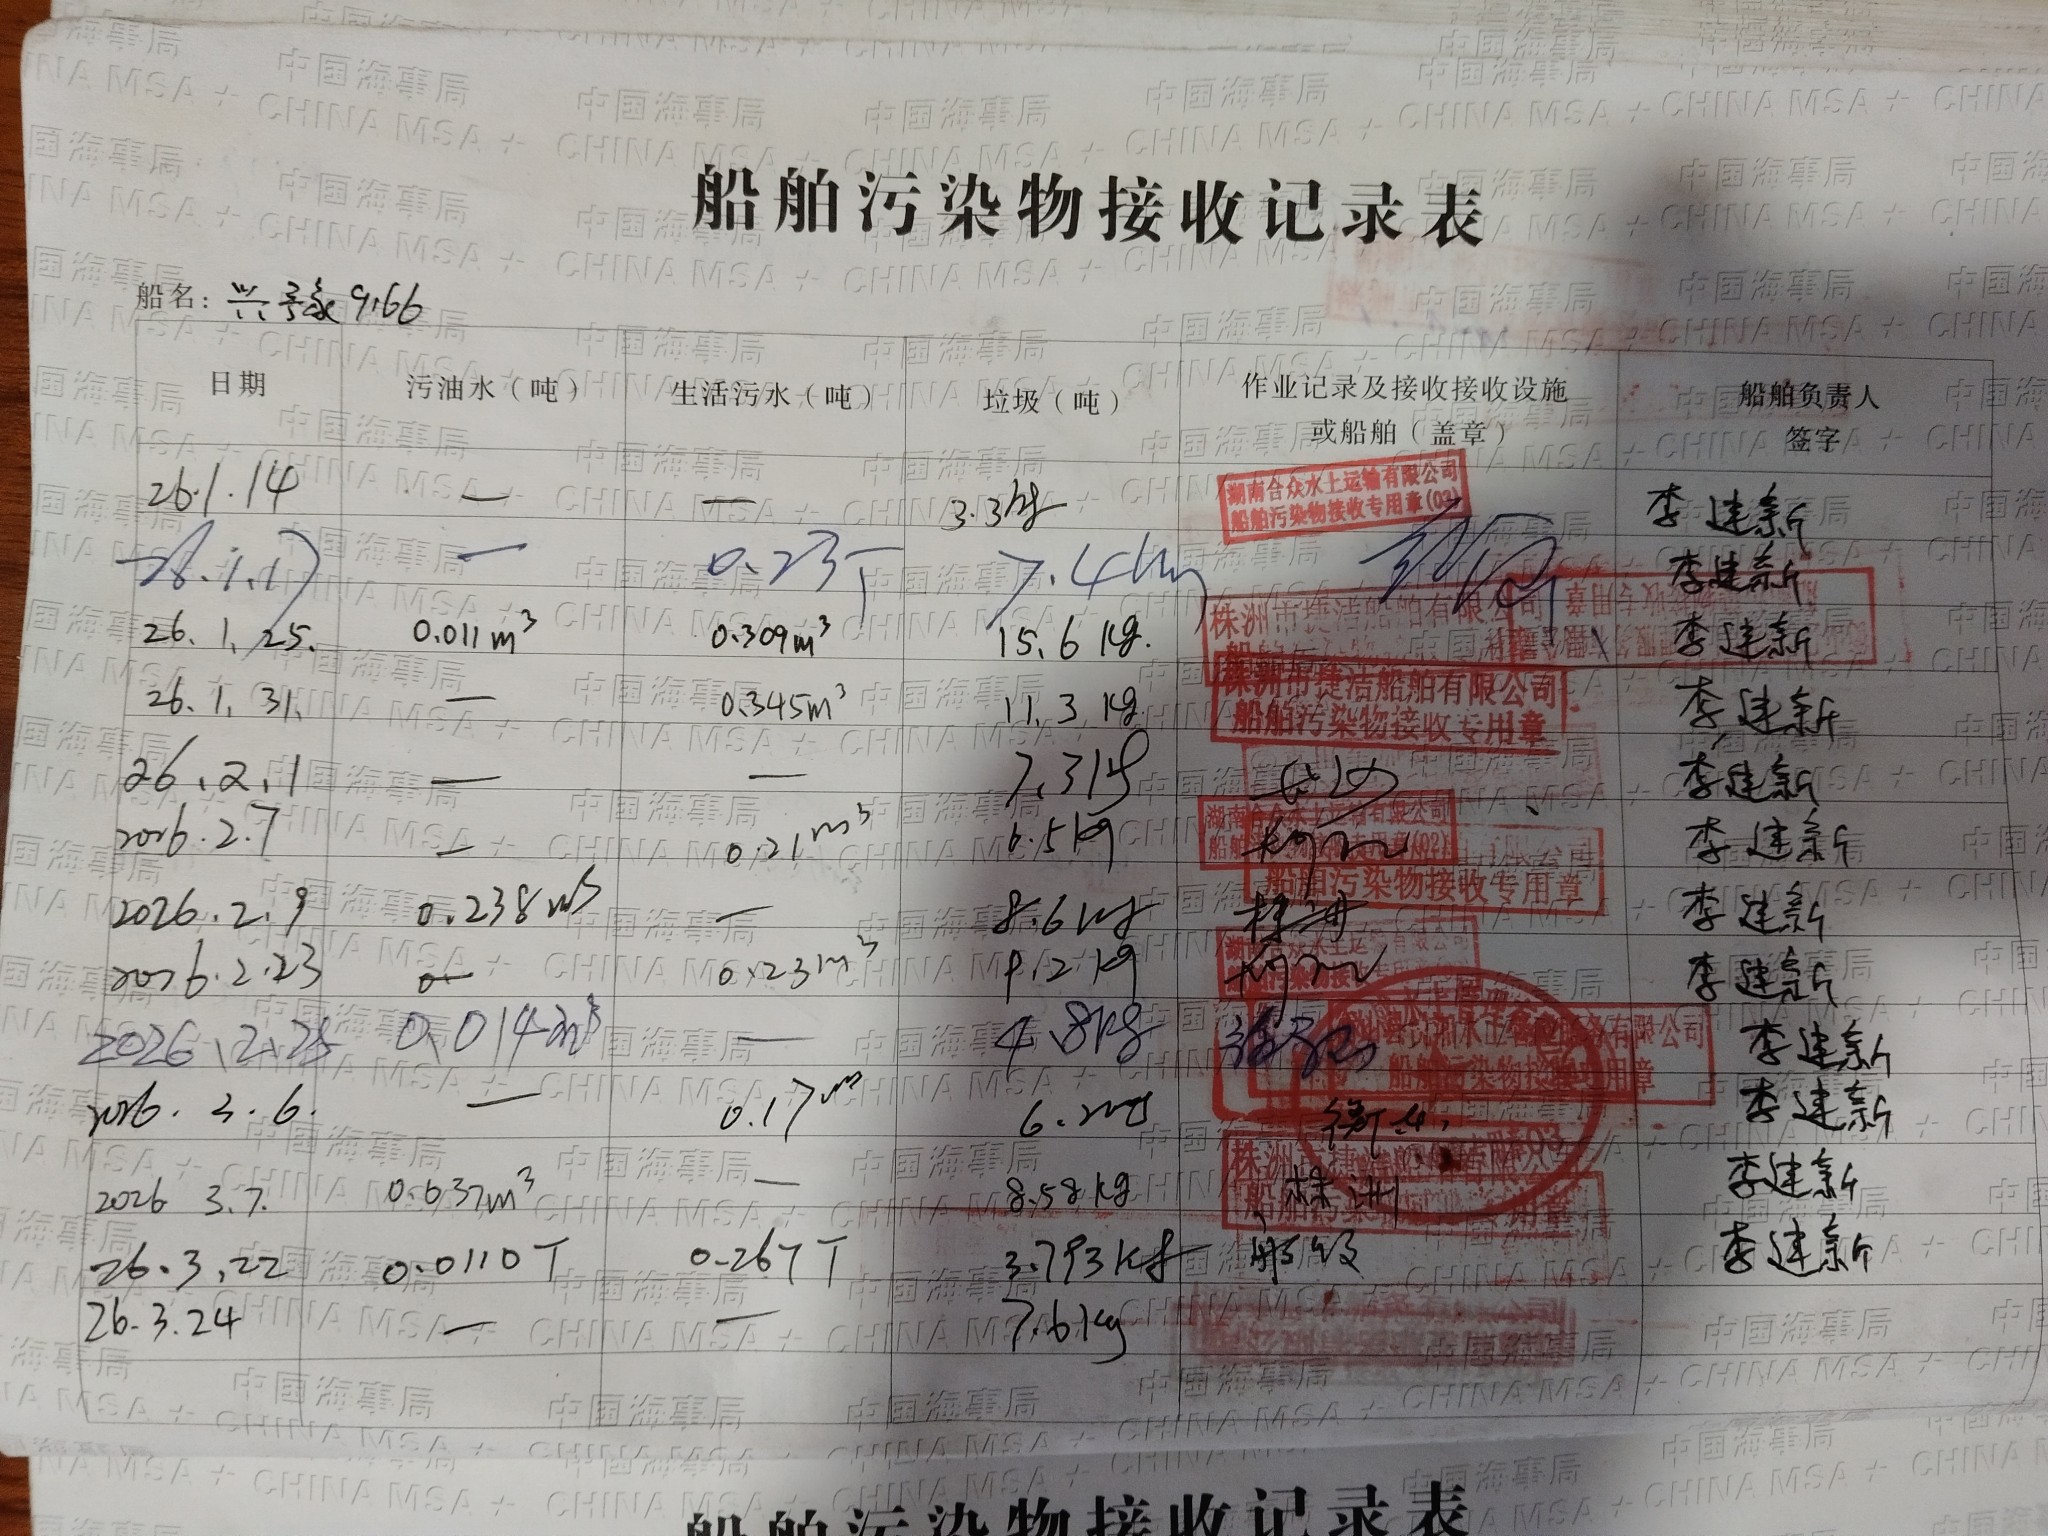 船舶污染物接收记录表
船名：兴 9166
日期 污油水（吨） 生活污水（吨） 垃圾（吨） 作业记录及接收接收设施或船舶（盖章） 船舶负责人签字
26.1.14 — — 3.3kg 湖南合众水上运输有限公司 船舶污染物接收专用章(02) 李建新
26.1.17 — 0.23T 7.4kg 李建新
26.1.25. 0.011m³ 0.309m³ 15.6kg. 株洲市捷洁船舶有限公司 李建新
26.1.31. — 0.345m³ 11.3kg 株洲市捷洁船舶有限公司 船舶污染物接收专用章 李建新
26.2.1 — — 7.3kg 李建新
2026.2.7 — 0.21m³ 6.5kg 湖南合众水上运输有限公司 船舶污染物接收专用章(02) 李建新
2026.2.9 0.238m³ — 8.6kg 船舶污染物接收专用章 李建新
2026.2.23 — 0.23m³ 9.2kg 李建新
2026.2.25 0.014m³ — 4.8kg 有限公司 船舶污染物接收专用章 李建新
2026.3.6. — 0.17m³ 李建新
2026 3.7. 0.037m³ — 8.58kg 株洲 李建新
26.3.22 0.0110T 0.267T 3.793kg 李建新
26.3.24 — — 7.6kg
船舶污染物接收记录表
中国海事局
CHINA MSA +